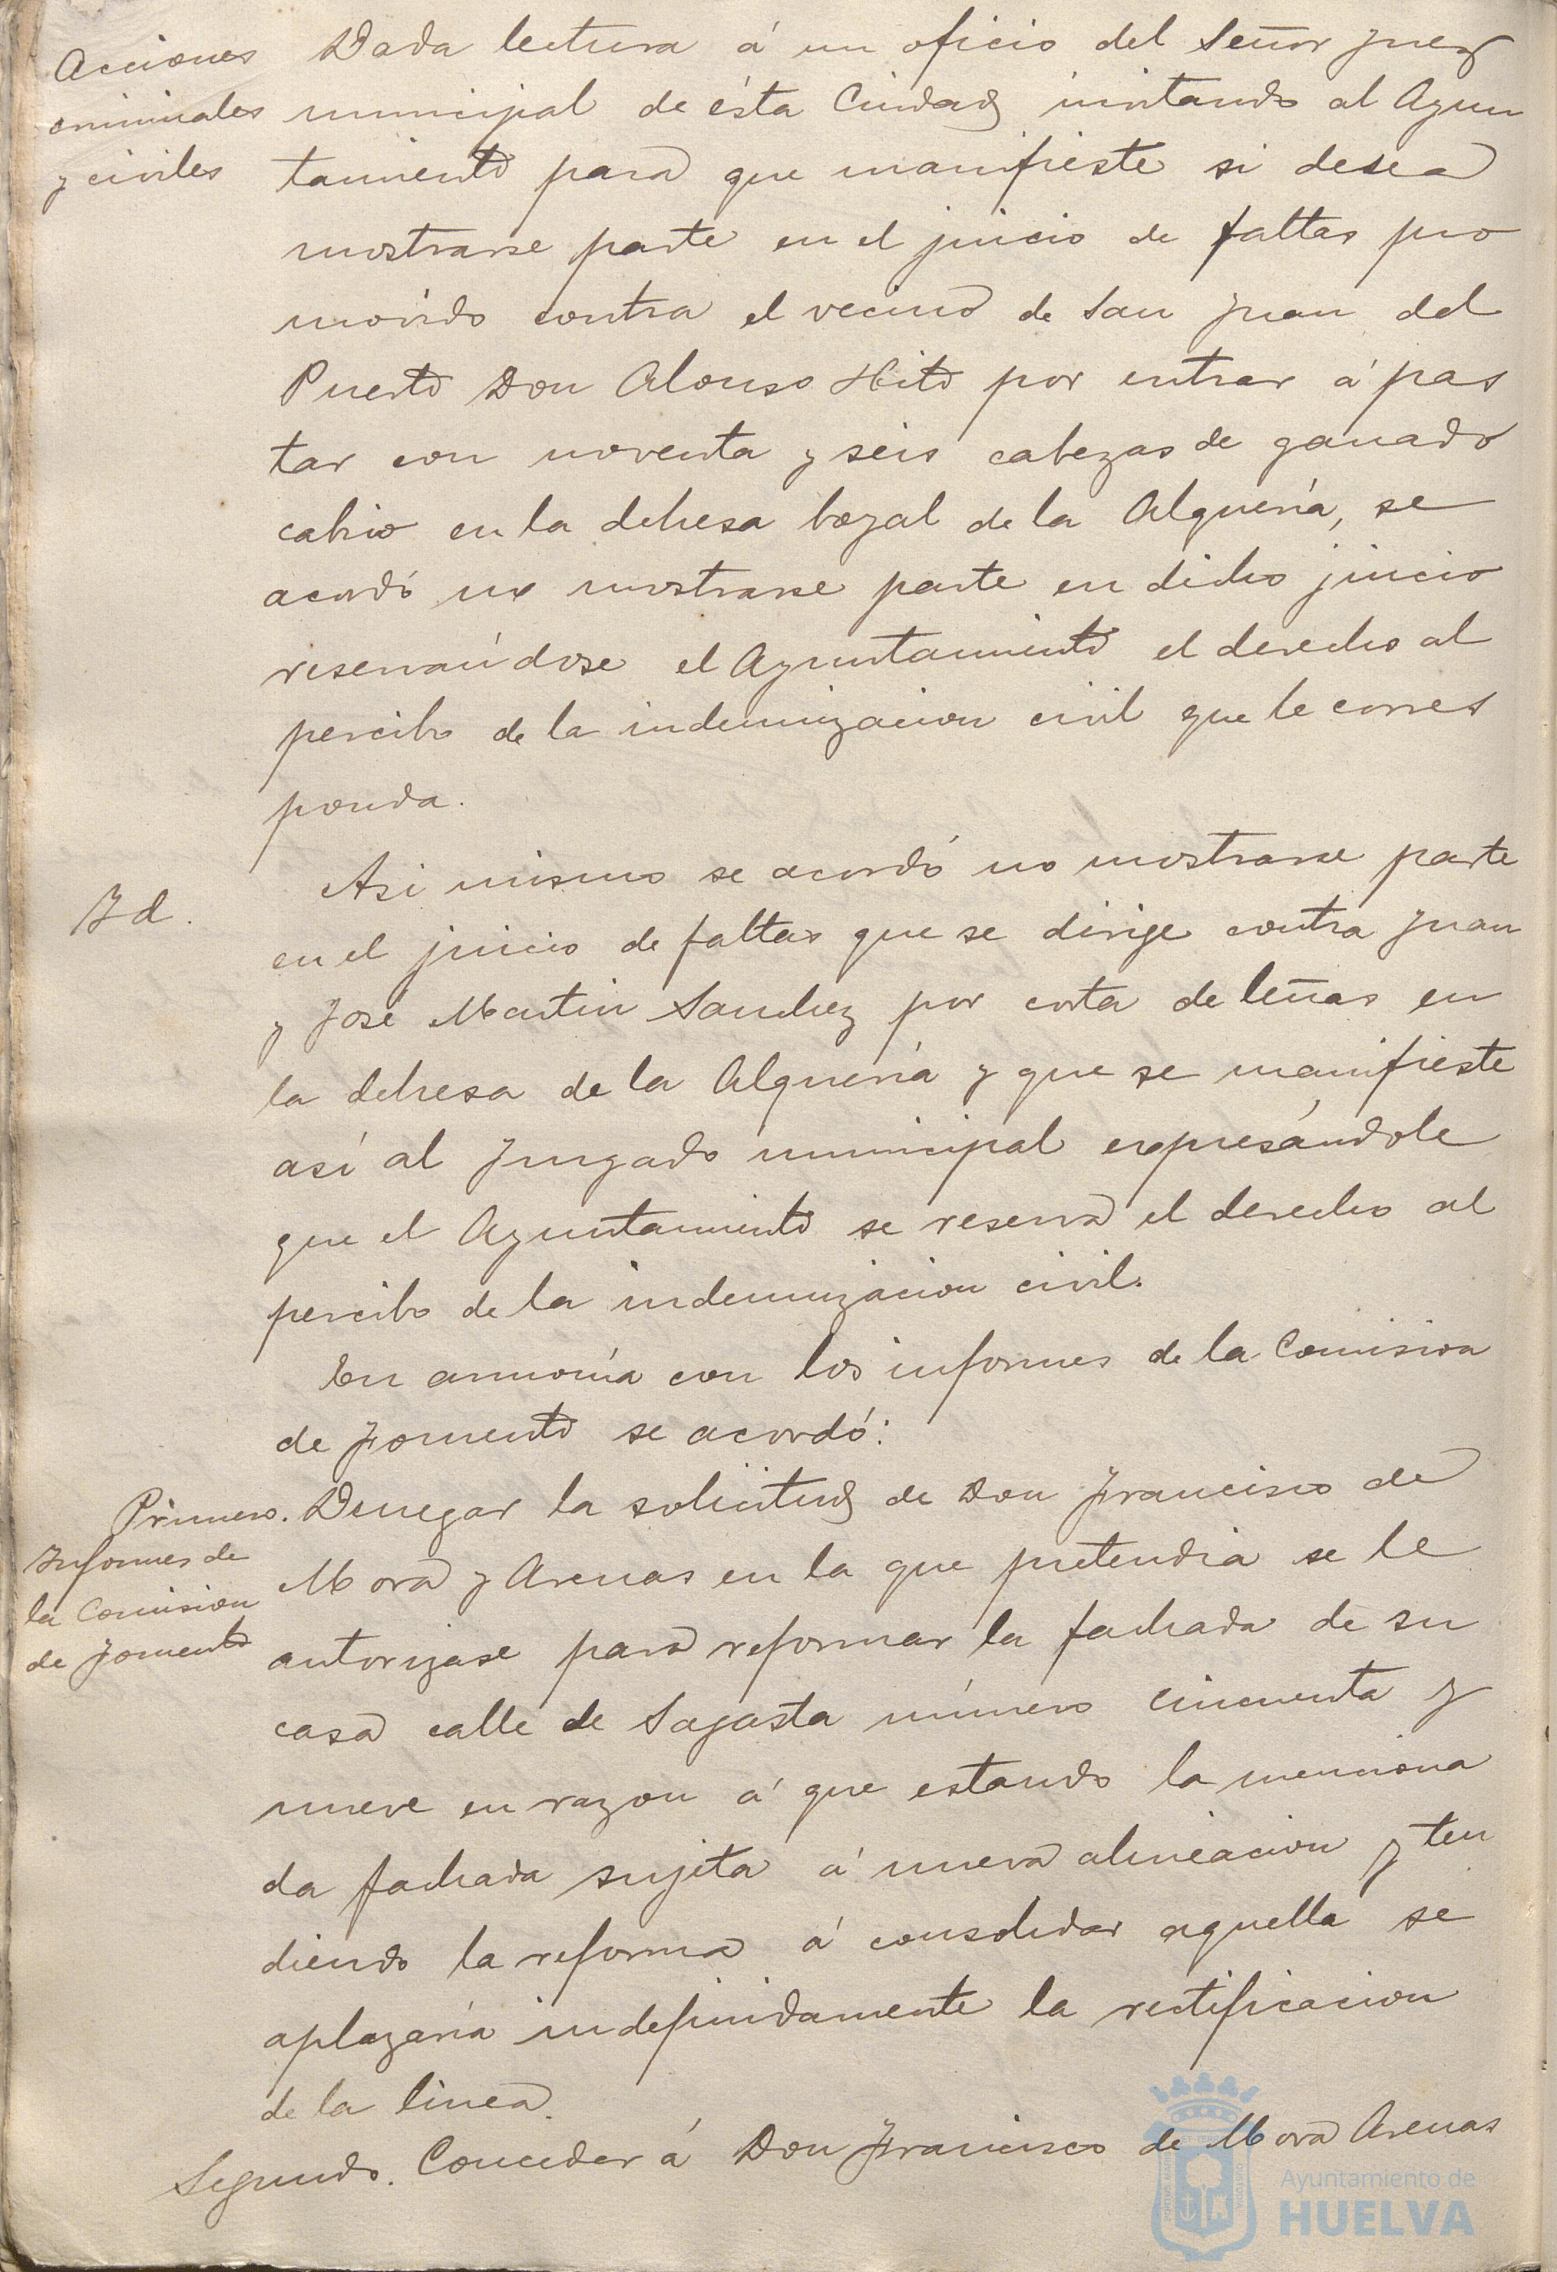 Acciones
criminales
y civiles
Dada lectura á un oficio del Señor Juez
municipal de ésta Ciudad invitando al Ayun
tamiento para que manifieste si desea
mostrarse parte en el juicio de faltas pro
movido contra el vecino de San Juan del
Puerto Don Alonso Hito por entrar á pas
tar con noventa y seis cabezas de ganado
cabrio en la dehesa boyal de la Alquería, se
acordó no mostrarse parte en dicho juicio
reservándose el Ayuntamiento el derecho al
percibo de la indemnizacion civil que le corres
ponda.
Id.
Asi mismo se acordó no mostrarse parte
en el juicio de faltas que se dirije contra Juan
y José Martin Sanchez por corta de leñas en
la dehesa de la Alquería y que se manifieste
así al Juzgado municipal expresándole
que el Ayuntamiento se reserva el derecho al
percibo de la indemnizacion civil.
En armonía con los informes de la Comision
de Fomento se acordó:
Informes de
la Comision
de Fomento
Primero. Denegar la solicitud de Don Francisco de
Mora y Arenas en la que pretendia se le
autorizase para reformar la fachada de su
casa calle de Sagasta número cincuenta y
nueve en razon á que estando la menciona
da fachada sujeta á nueva alineacion y ten
diendo la reforma á consolidar aquella se
aplazaría indefinidamente la rectificacion
de la linea.
Segundo. Conceder á Don Francisco de Mora Arenas
Ayuntamiento de
HUELVA